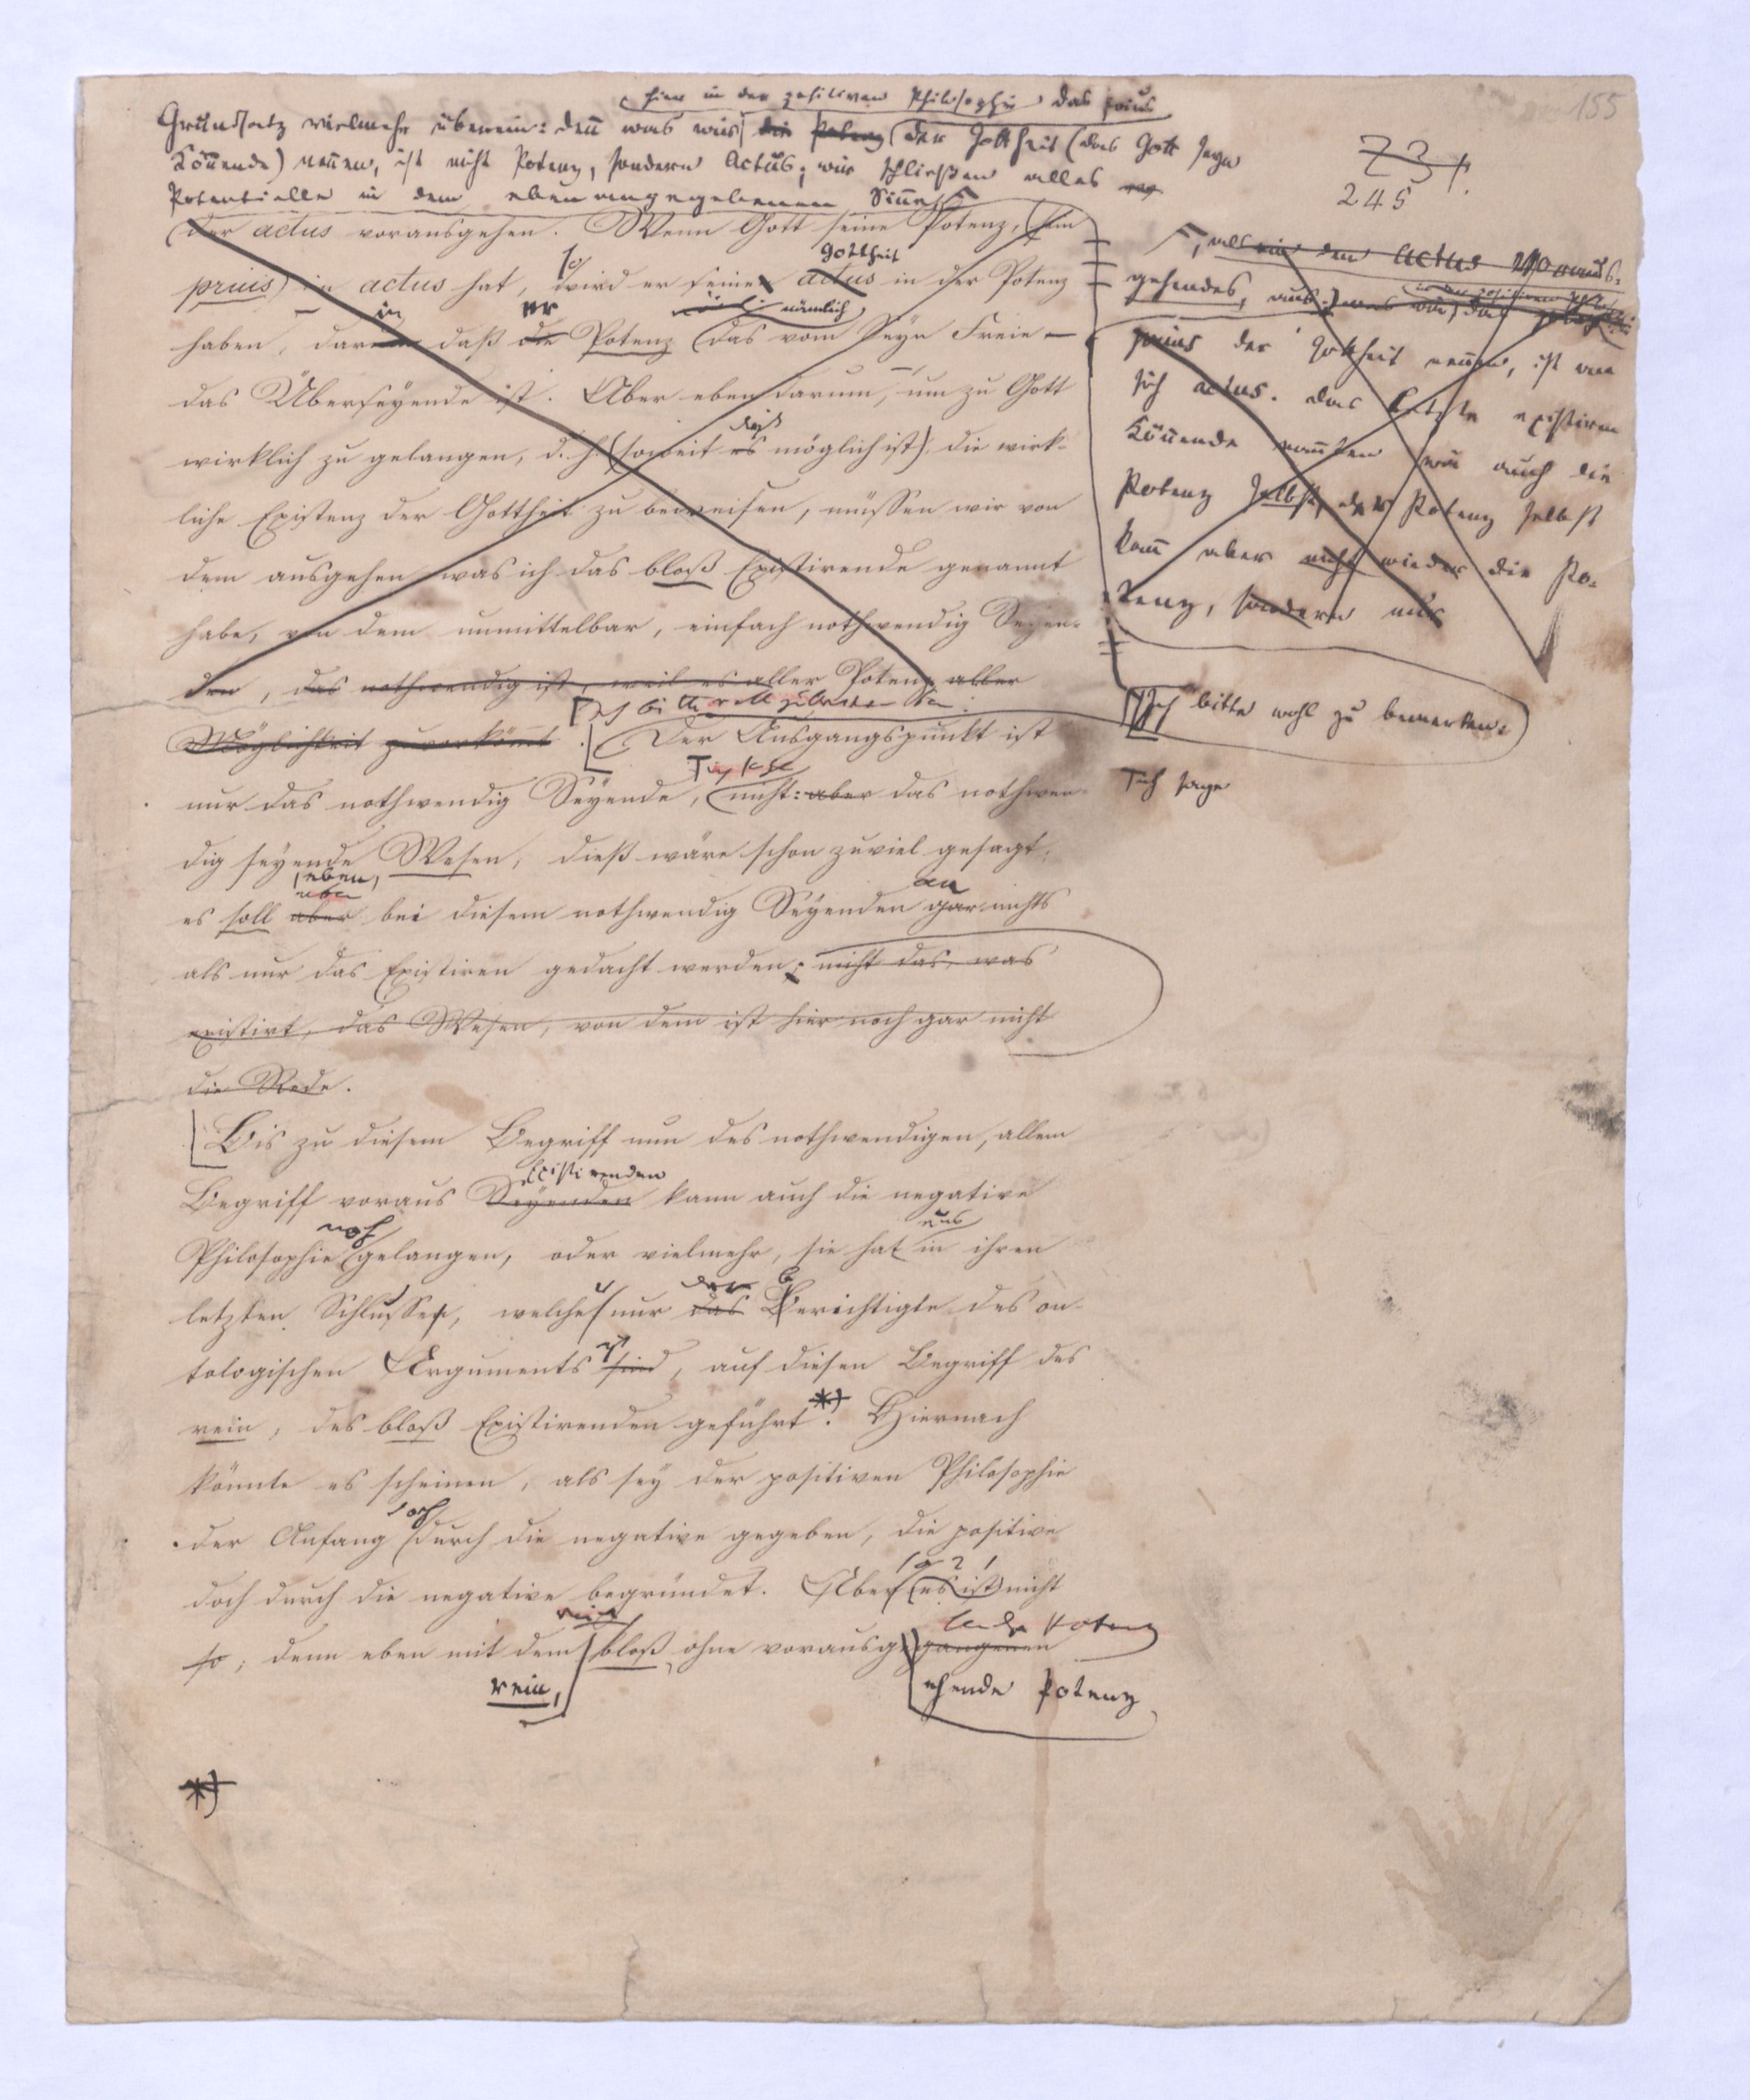 155
73.
245
hier in der positiven Philosophie das prius
Grundsatz vielmehr überein: deñ was wir die Potenz der Gottheit (das Gott seyn
Köñende) neñen, ist nicht Potenz, sondern Actus; wir schließen alles
Potentielle in dem eben angegebenen Siñe
der actus vorausgehen. Wenn Gott seine Potenz, (sein
prius) in actus hat, so wird er seine Gottheit actus in der Potenz
haben, darin daß er die Potenz nämlich (das vom Seyn Freie –
das Überseyende ist. Aber eben darum, um zu Gott
wirklich zu gelangen, d. h. (soweit es dieß möglich ist) die wirk-
liche Existenz der Gottheit zu beweisen, müssen wir von
dem ausgehen was ich das bloß Existirende genannt
habe, von dem unmittelbar, einfach nothwendig Seyen-
den, das nothwendig ist, weil es aller Potenz aller
Ich bitte wohl zu bemerken:
Möglichkeit zuvorkömt. Der Ausgangspunkt ist
Ich sage
nur das nothwendig Seyende, nicht: aber das nothwen-
dig seyende Wesen, dieß wäre schon zuviel gesagt;
eben,
es soll aber bei diesem nothwendig Seyenden gar an nichts
als nur das Existiren gedacht werden; nicht das, was
existirt, das Wesen, von dem ist hier noch gar nicht
die Rede.
Bis zu diesem Begriff nun des nothwendigen, allem
Existirenden
Begriff voraus Seyenden kann auch die negative
noch uns
Philosophie gelangen, oder vielmehr, sie hat in ihren
der b
letzten Schlusse, welcher nur das Berichtigte des on-
tologischen Arguments sind, auf diesen Begriff des
rein, des bloß Existirenden geführt *). Hiernach
könnte es scheinen, als sey der positiven Philosophie
doch
der Anfang durch die negative gegeben, die positive
doch durch die negative begründet. Aber es ist nicht
so; denn eben mit dem bloß ohne vorausgegangenen
rein,
ehende Potenz
*)
, als ein dem Actus Voraus-
gehendes, aus; was wir das
in der positiven
prius der Gottheit neñen, ist an
sich actus. das Letzte existiren
Köñende nañten wir auch die
Potenz selbst, der Potenz selbst
kañ aber nicht wieder die Po-
tenz, sondern nur
Ich bitte wohl zu bemerken:
Ich sage